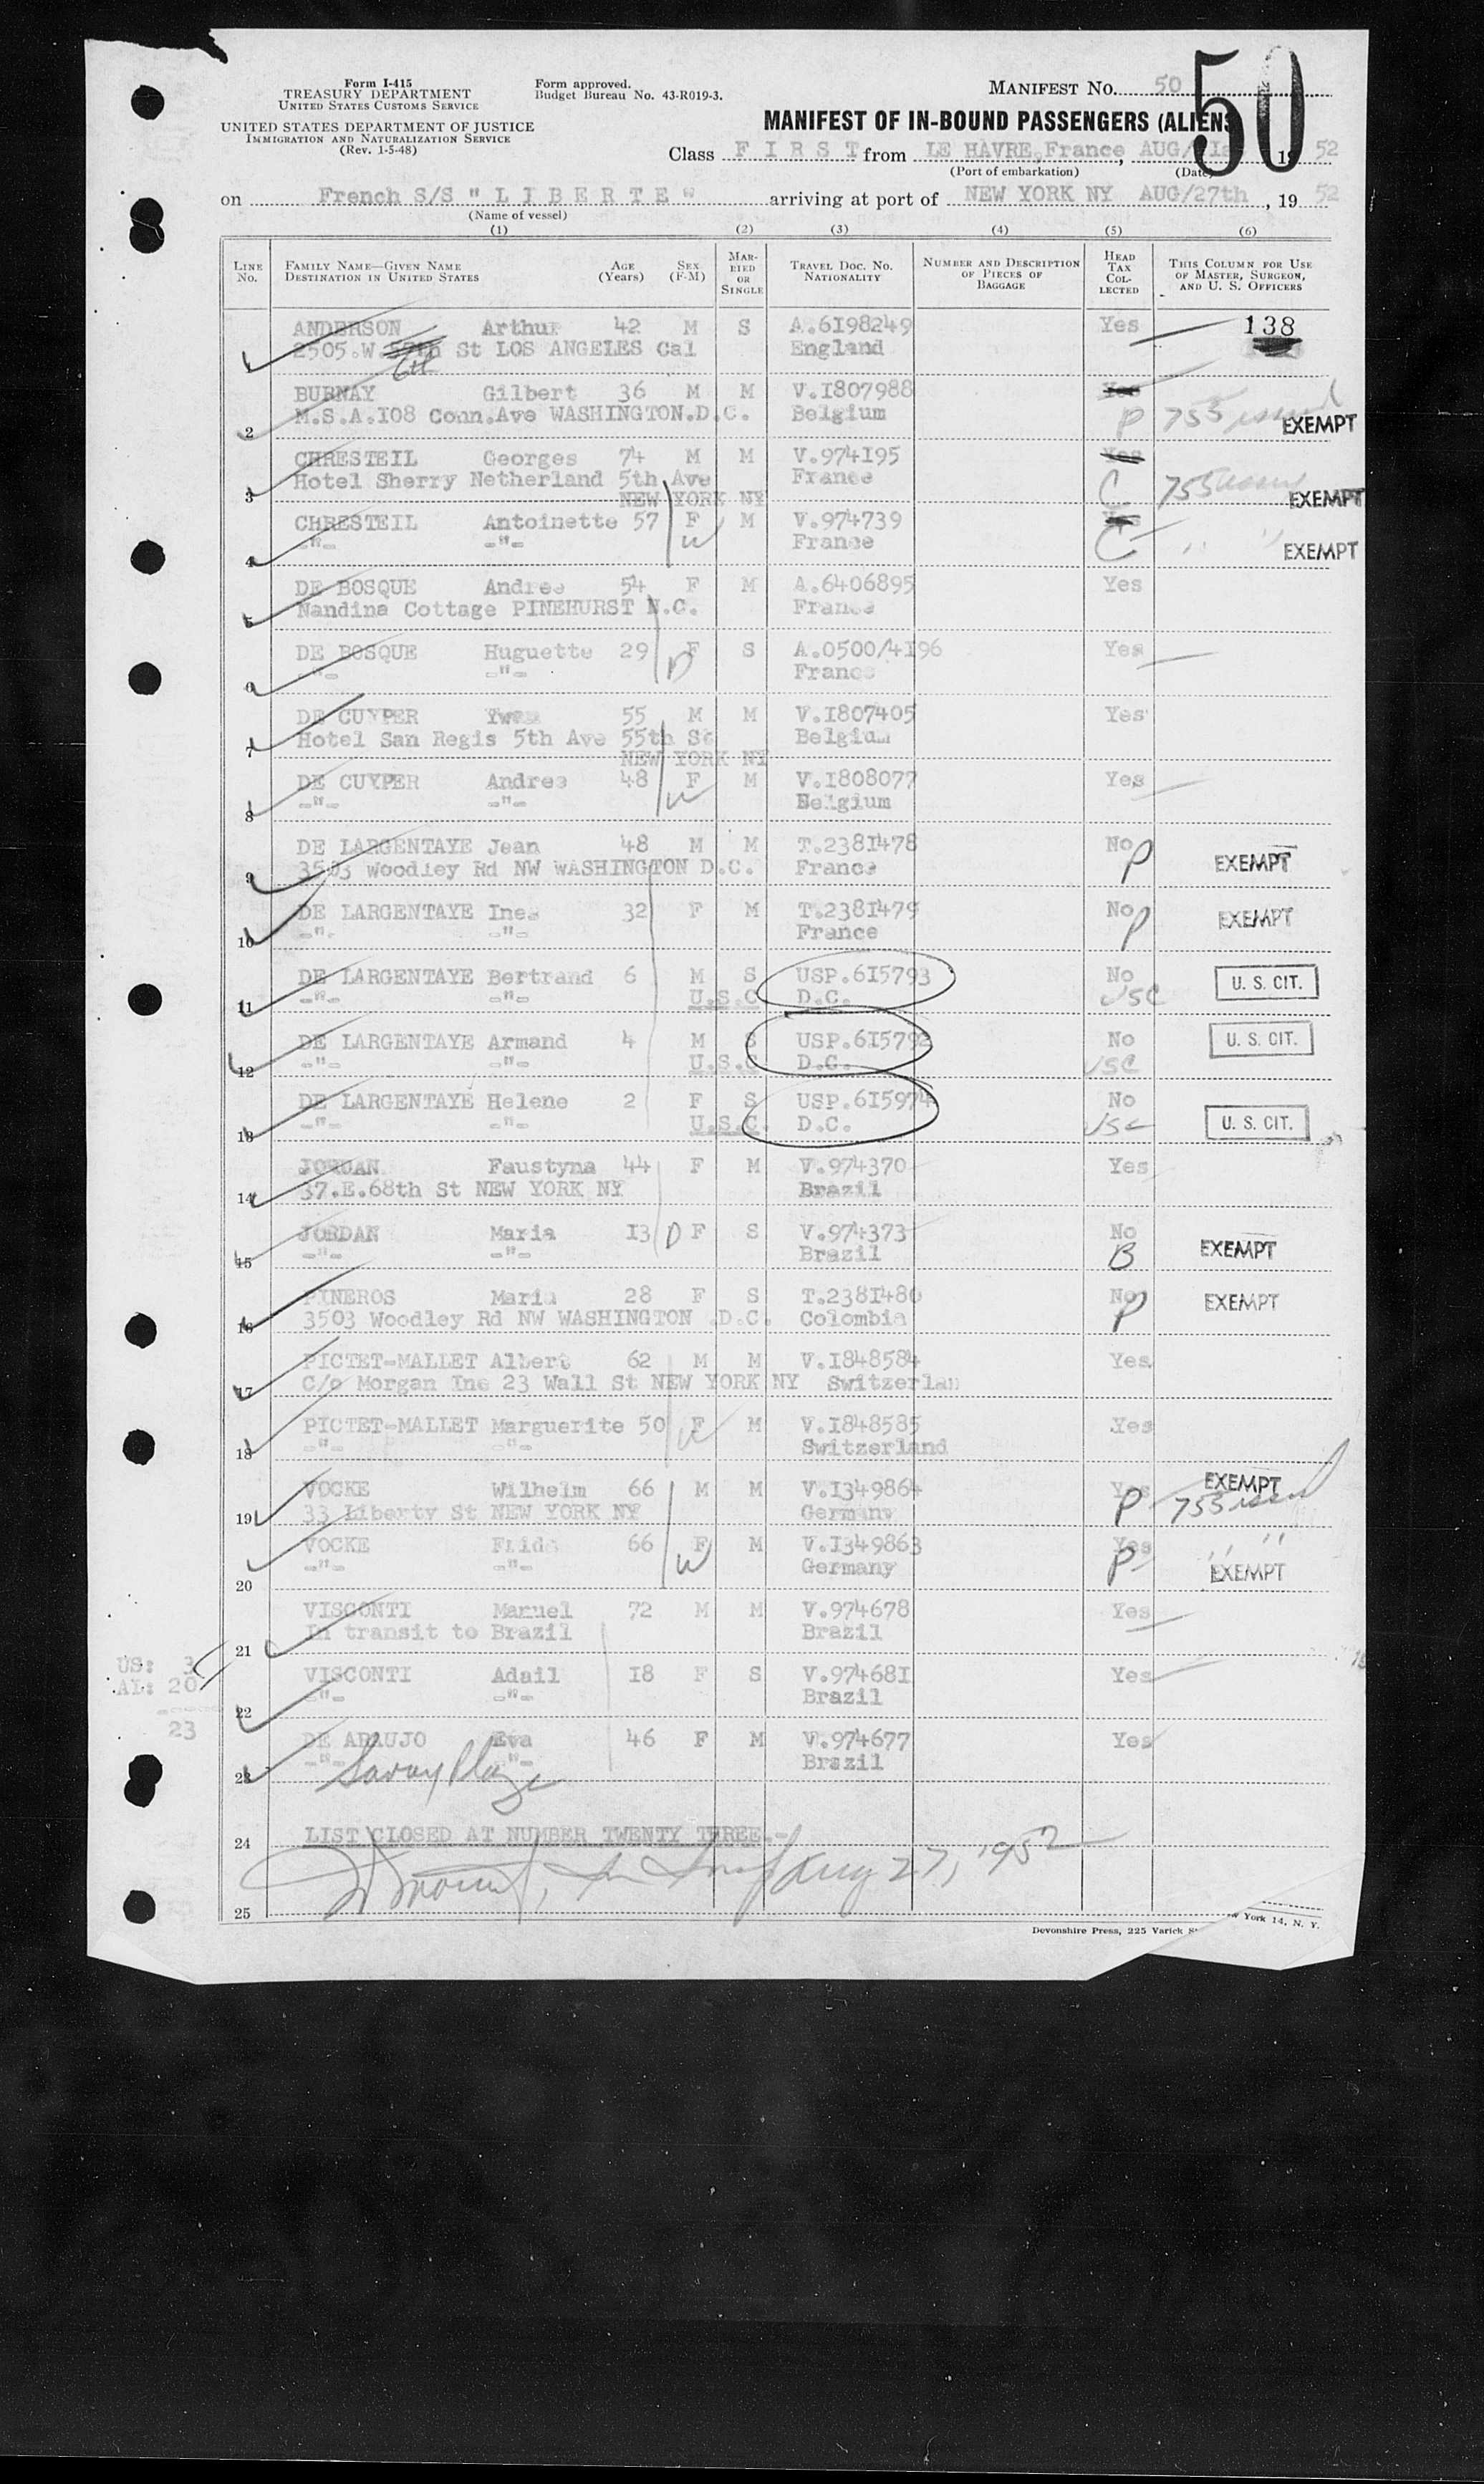 Form I-415
TREASURY DEPARTMENT
UNITED STATES CUSTOMS SERVICE
UNITED STATES DEPARTMENT OF JUSTICE
IMMIGRATION AND NATURALIZATION SERVICE
(Rev. 1-5-48)
Form approved.
Budget Bureau No. 43-R019-3.
MANIFEST NO. 50
50
MANIFEST OF IN-BOUND PASSENGERS (ALIENS
Class F I R S T from LE HAVRE, France, AUG/ 19 52
(Port of embarkation) (Date)
on French S/S " L I B E R T E " arriving at port of NEW YORK NY AUG/27th, 19 52
(Name of vessel)
(1) (2) (3) (4) (5) (6)
LINE NO.
FAMILY NAME—GIVEN NAME
DESTINATION IN UNITED STATES
AGE (Years)
SEX (F-M)
MARRIED OR SINGLE
TRAVEL DOC. NO.
NATIONALITY
NUMBER AND DESCRIPTION OF PIECES OF BAGGAGE
HEAD TAX COLLECTED
THIS COLUMN FOR USE OF MASTER, SURGEON, AND U. S. OFFICERS
1 ANDERSON Arthur 42 M S A.6198249 Yes 138
2505.W 6th St LOS ANGELES Cal England
2 BURNAY Gilbert 36 M M V.1807988 Yes
M.S.A.108 Conn.Ave WASHINGTON.D.C. Belgium P 755 issued EXEMPT
3 CHRESTEIL Georges 74 M M V.974195 Yes
Hotel Sherry Netherland 5th Ave France C 755 issued EXEMPT
NEW YORK NY
4 CHRESTEIL Antoinette 57 F M V.974739 Yes
-"- -"- W France C " " EXEMPT
5 DE BOSQUE Andree 54 F M A.6406895 Yes
Nandina Cottage PINEHURST N.C. France
6 DE BOSQUE Huguette 29 F S A.0500/4196 Yes
-"- -"- D France
7 DE CUYPER 55 M M V.1807405 Yes
Hotel San Regis 5th Ave 55th St Belgium
NEW YORK NY
8 DE CUYPER Andree 48 F M V.1808077 Yes
-"- -"- W Belgium
9 DE LARGENTAYE Jean 48 M M T.2381478 No P EXEMPT
3503 Woodley Rd NW WASHINGTON D.C. France
10 DE LARGENTAYE Ines 32 F M T.2381479 No P EXEMPT
-"- -"- France
11 DE LARGENTAYE Bertrand 6 M S USP.615793 No U. S. CIT.
-"- -"- U.S.C D.C. USC
12 DE LARGENTAYE Armand 4 M S USP.615792 No U. S. CIT.
-"- -"- U.S.C D.C. USC
13 DE LARGENTAYE Helene 2 F S USP.615974 No
-"- -"- U.S.C. D.C. USC U. S. CIT.
14 JORDAN Faustyna 44 F M V.974370 Yes
37.E.68th St NEW YORK NY Brazil
15 JORDAN Maria 13 D F S V.974373 No
-"- -"- Brazil B EXEMPT
16 PINEROS Maria 28 F S T.2381480 No P EXEMPT
3503 Woodley Rd NW WASHINGTON .D.C. Colombia
17 PICTET-MALLET Albert 62 M M V.1848584 Yes
C/o Morgan Inc 23 Wall St NEW YORK NY Switzerlan
18 PICTET-MALLET Marguerite 50 F M V.1848585 Yes
-"- -"- W Switzerland
19 VOCKE Wilhelm 66 M M V.1349864 Yes EXEMPT
33 Liberty St NEW YORK NY Germany P 755 issued
20 VOCKE Frida 66 F M V.1349863 Yes " "
-"- -"- W Germany P EXEMPT
21 VISCONTI Manuel 72 M M V.974678 Yes
In transit to Brazil Brazil
US: 3
AL: 20
----
23
22 VISCONTI Adail 18 F S V.974681 Yes
-"- -"- Brazil
23 DE ARAUJO Eva 46 F M V.974677 Yes
-"- -"- Brazil
Savoy Plaza
24 LIST CLOSED AT NUMBER TWENTY THREE.-
Aug 27, 1952
25
Devonshire Press, 225 Varick St York 14, N. Y.